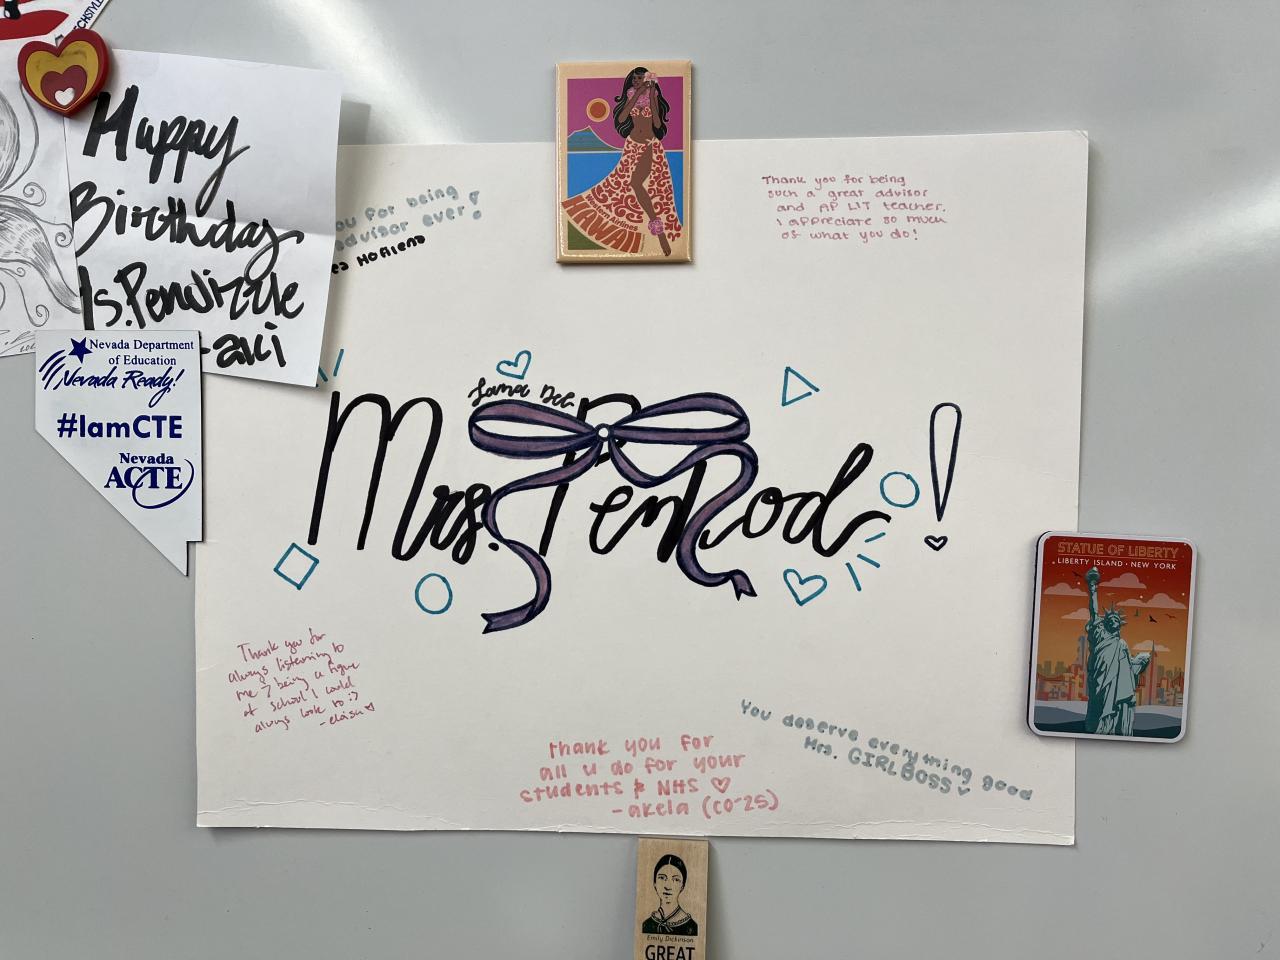 ECHSTYLE
Happy
Birthday
-avi
Nevada Department
of Education
Nevada Ready!
#IamCTE
Nevada
ACTE
ou for being
advisor ever!
Hofilena
HAWAII
Thank you for being
such a great advisor
and AP LIT teacher.
I appreciate so much
of what you do!
Mrs. Penrod!
STATUE OF LIBERTY
LIBERTY ISLAND • NEW YORK
Thank you for
always listening to
me & being a figure
at school I could
always look to :)
thank you for
all u do for your
students & NHS ♡
-akela (CO-25)
You deserve everything good
Mrs. GIRLBOSS
Emily Dickinson
GREAT